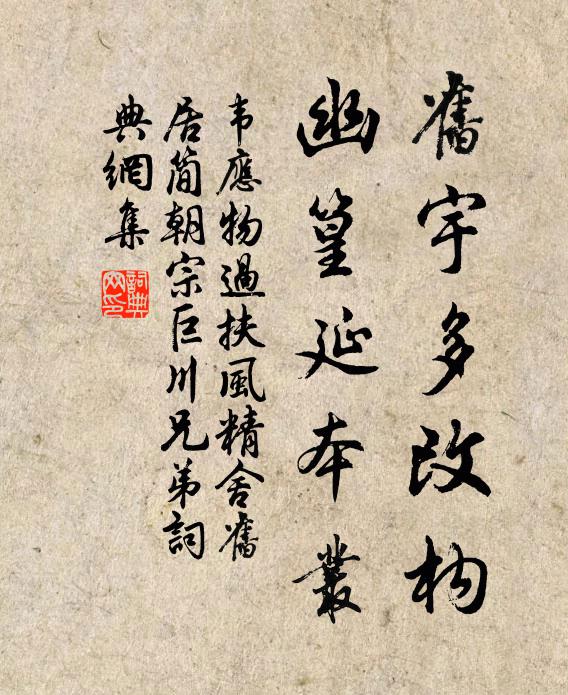 舊宇多改构
幽篁延本叢
韦應物過扶風精舍舊
居简朝宗巨川兄弟詞
典網集
詞典
网印